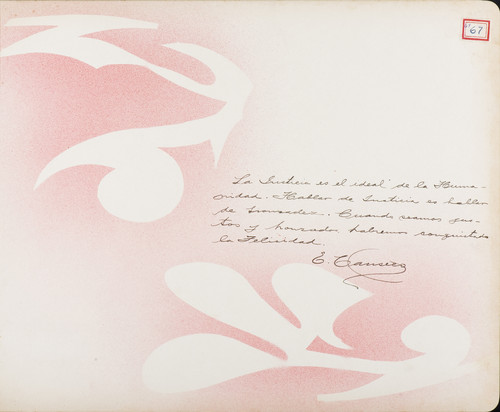 67
La Justicia es el ideal de la Huma-
nidad. Hablar de Justicia es hablar
de honradez. Cuando seamos jus-
tos y honrados, habremos conquistado
la Felicidad.
E. Canseco